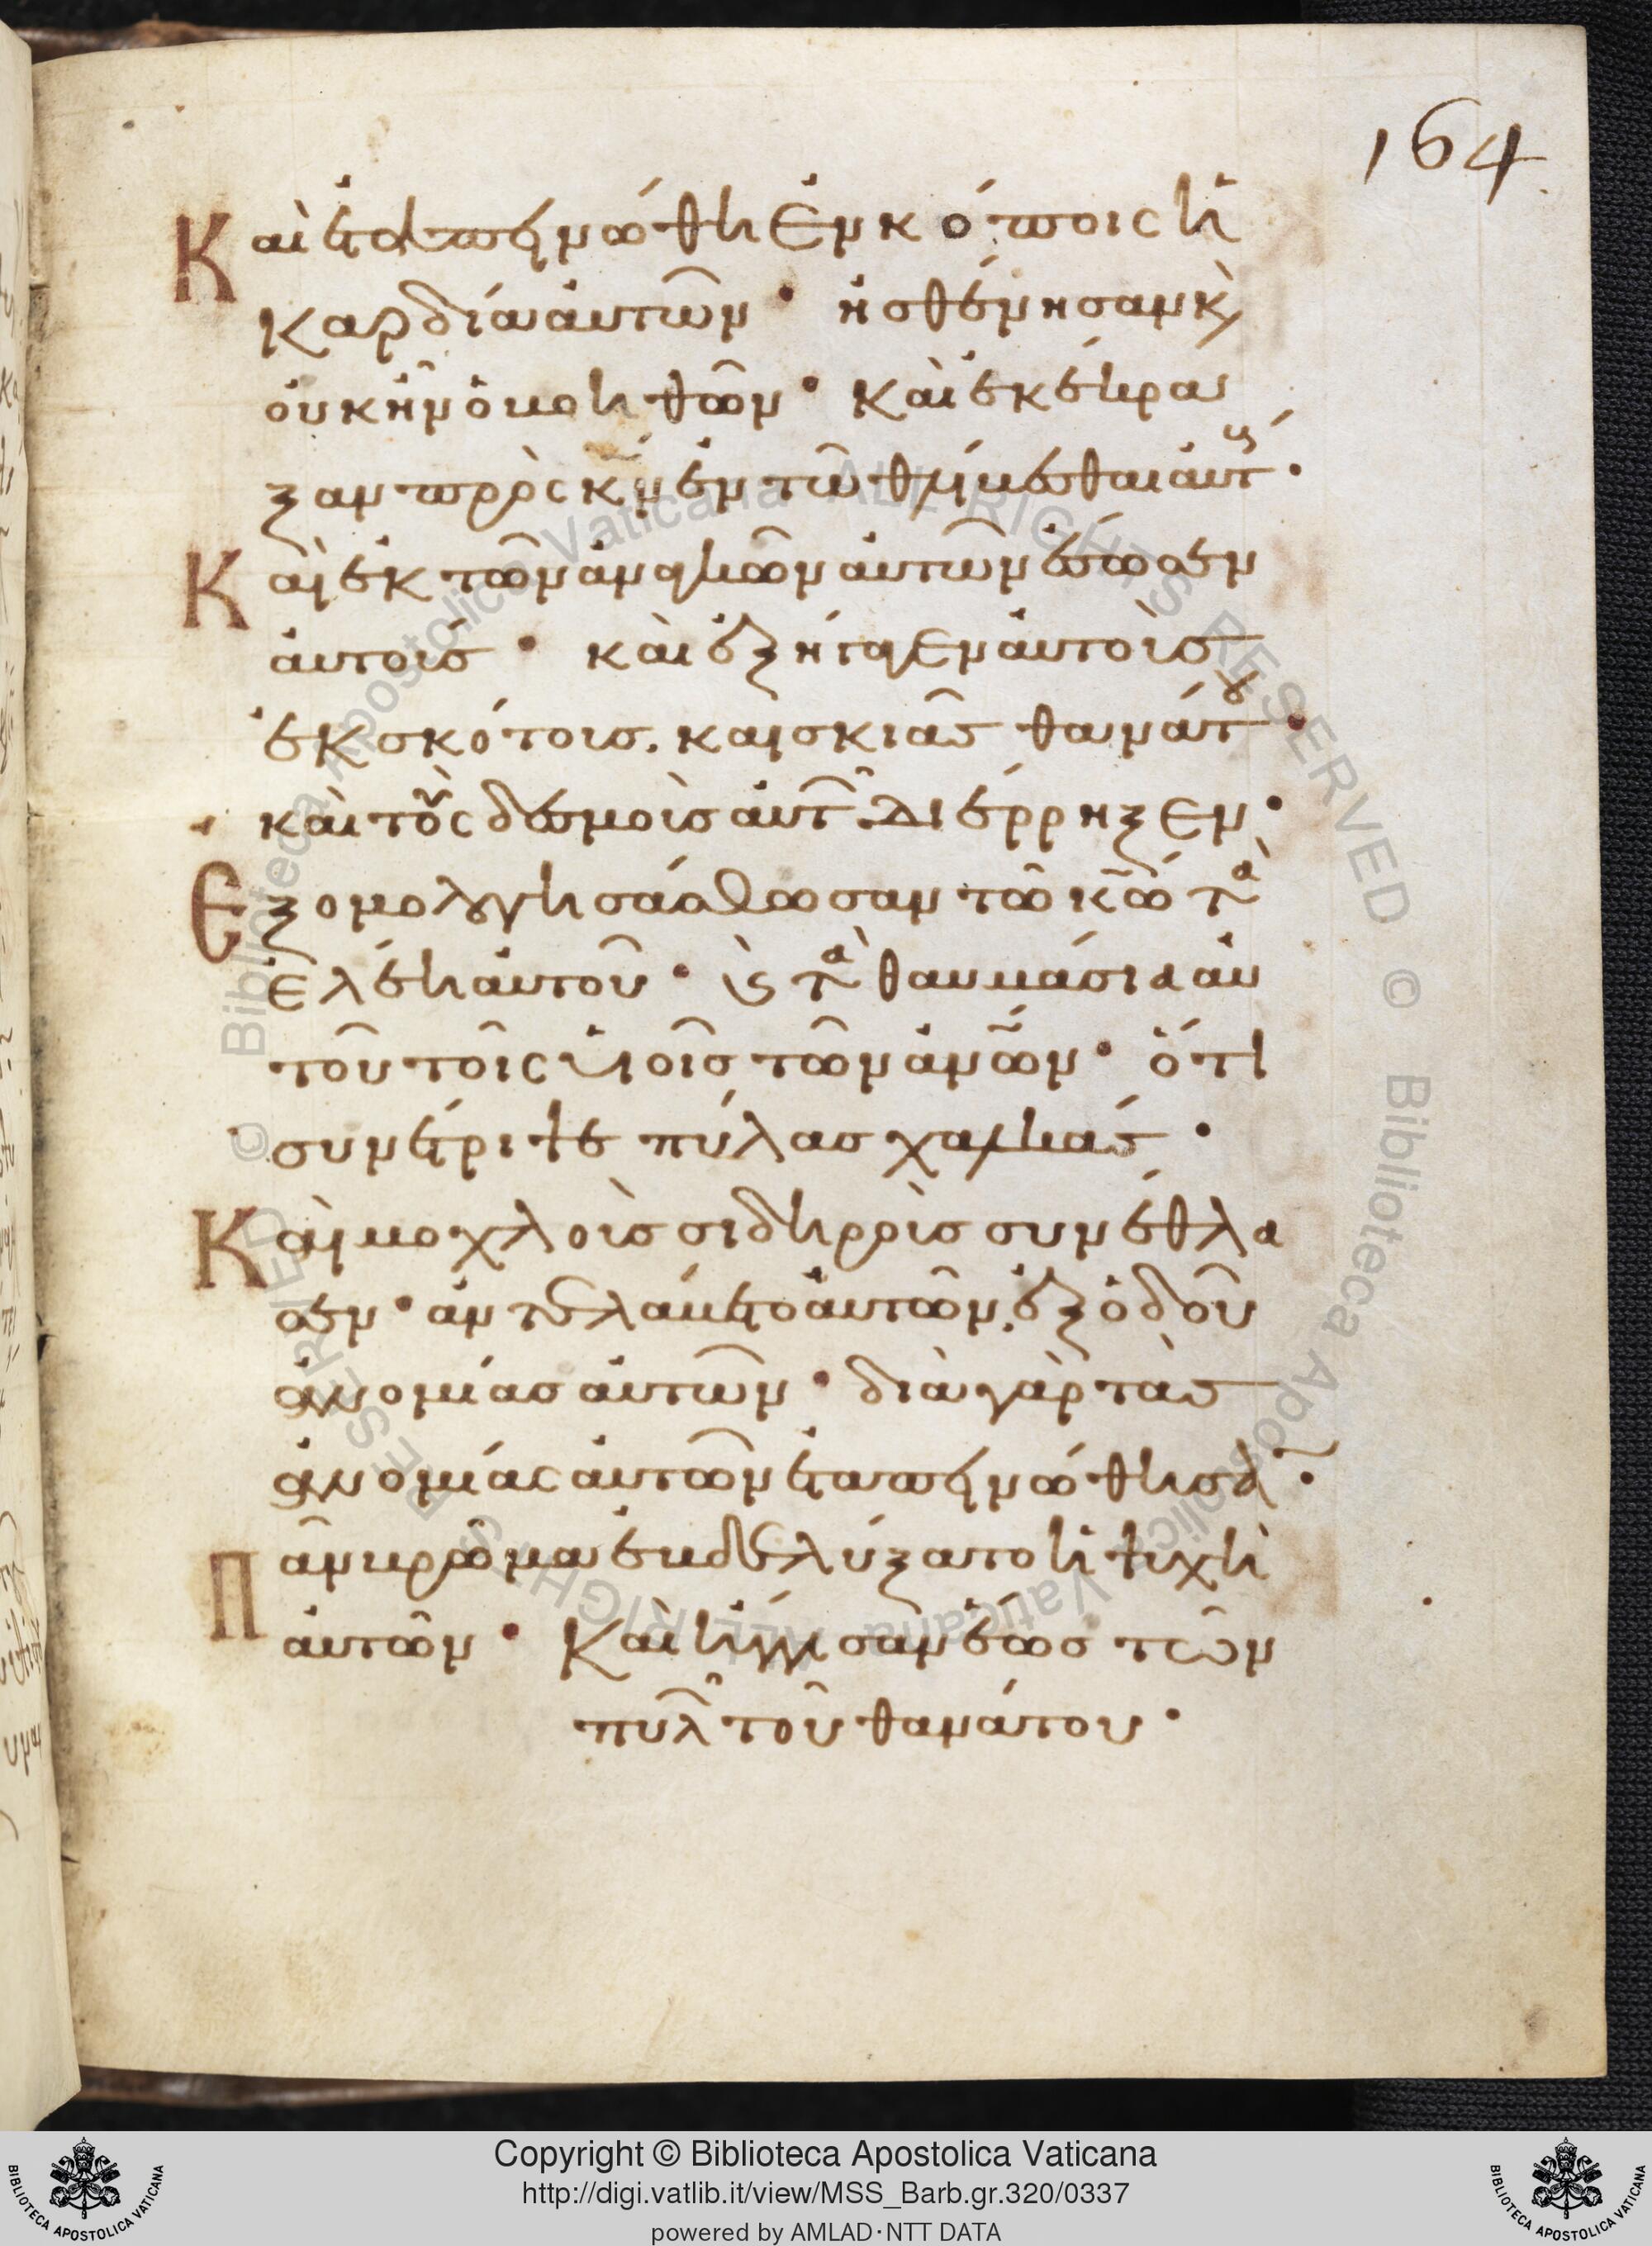 164.
Καὶ ἐταπεινώθη ἐν κόποις ἡ
καρδία αὐτῶν · ἠσθένησαν κ(αὶ)
οὐκ ἦν ὁ βοηθῶν · καὶ ἐκέκρα
ξαν πρὸς κν ἐν τῶ θλίβεσθαι αὐτ(ούς) ·
Καὶ ἐκ τῶν ἀναγκῶν αὐτῶν ἔσωσεν
αὐτούς · καὶ ἐξήγαγεν αὐτοὺς
ἐκ σκότους. καὶ σκιᾶς θανάτου ·
καὶ τοὺς δεσμοὺς αὐτ(ῶν) διέρρηξεν ·
Ἐξομολογησάσθωσαν τῶ κω τὰ
ἐλέη αὐτοῦ · κ(αὶ) τὰ θαυμάσια αὐ
τοῦ τοῖς υἱοῖς τῶν ανων · ὅτι
συνέτριψε πύλας χαλκάς ·
Καὶ μοχλοὺς σιδηροὺς συνέθλα
σεν · ἀντελάβετο αὐτῶν ἐξ ὁδοῦ
ἀνομίας αὐτῶν · διὰ γὰρ τὰς
ἀνομίας αὐτῶν ἐταπεινώθησαν ·
Πᾶν βρῶμα ἐβδελύξατο ἡ ψυχὴ
αὐτῶν · Καὶ ἤγγισαν ἕως τῶν
πυλ(ῶν) τοῦ θανάτου ·
Copyright © Biblioteca Apostolica Vaticana
http://digi.vatlib.it/view/MSS_Barb.gr.320/0337
powered by AMLAD·NTT DATA
BIBLIOTECA APOSTOLICA VATICANA
BIBLIOTECA APOSTOLICA VATICANA
© Biblioteca Apostolica Vaticana ALL RIGHTS RESERVED © Biblioteca Apostolica Vaticana ALL RIGHTS RESERVED